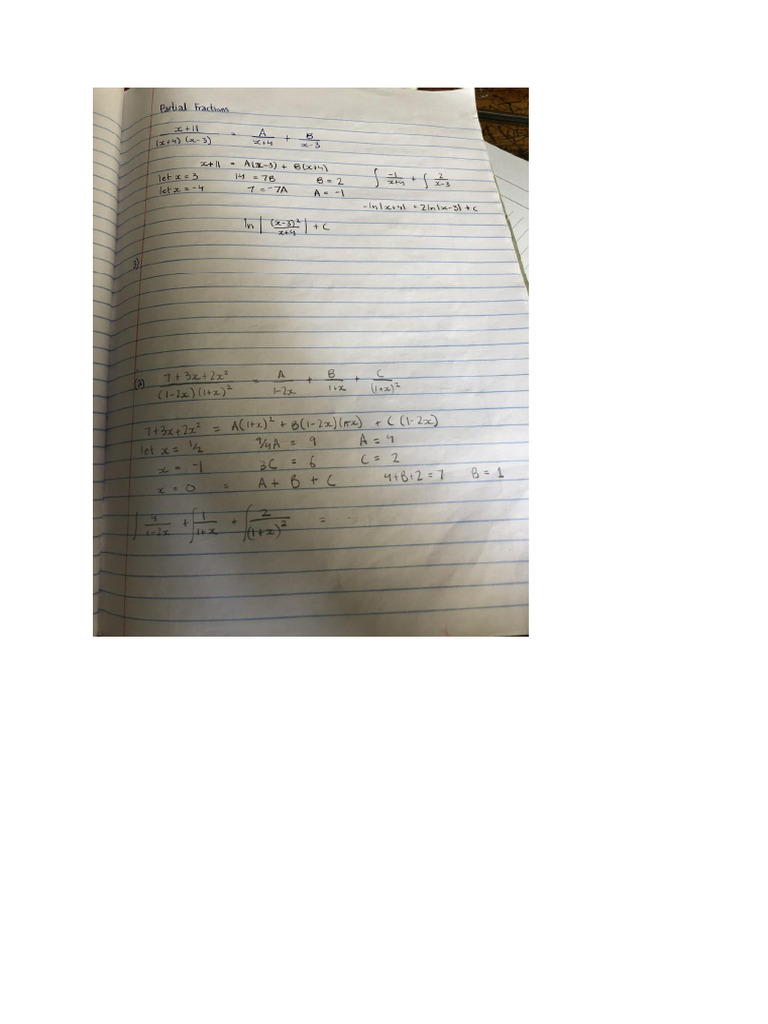 Partial Fractions
x+11 / (x+4)(x-3) = A / x+4 + B / x-3
x+11 = A(x-3) + B(x+4)
let x = 3 14 = 7B B = 2 ∫ -1 / x+4 + ∫ 2 / x-3
let x = -4 7 = -7A A = -1
-ln|x+4| + 2ln|x-3| + C
ln | (x-3)² / x+4 | + C
3)
(2) 7+3x+2x² / (1-2x)(1+x)² = A / 1-2x + B / 1+x + C / (1+x)²
7+3x+2x² = A(1+x)² + B(1-2x)(1+x) + C(1-2x)
let x = 1/2 9/4A = 9 A = 4
x = -1 3C = 6 C = 2
x = 0 = A + B + C 4+B+2 = 7 B = 1
∫ 4 / 1-2x + ∫ 1 / 1+x + ∫ 2 / (1+x)² =